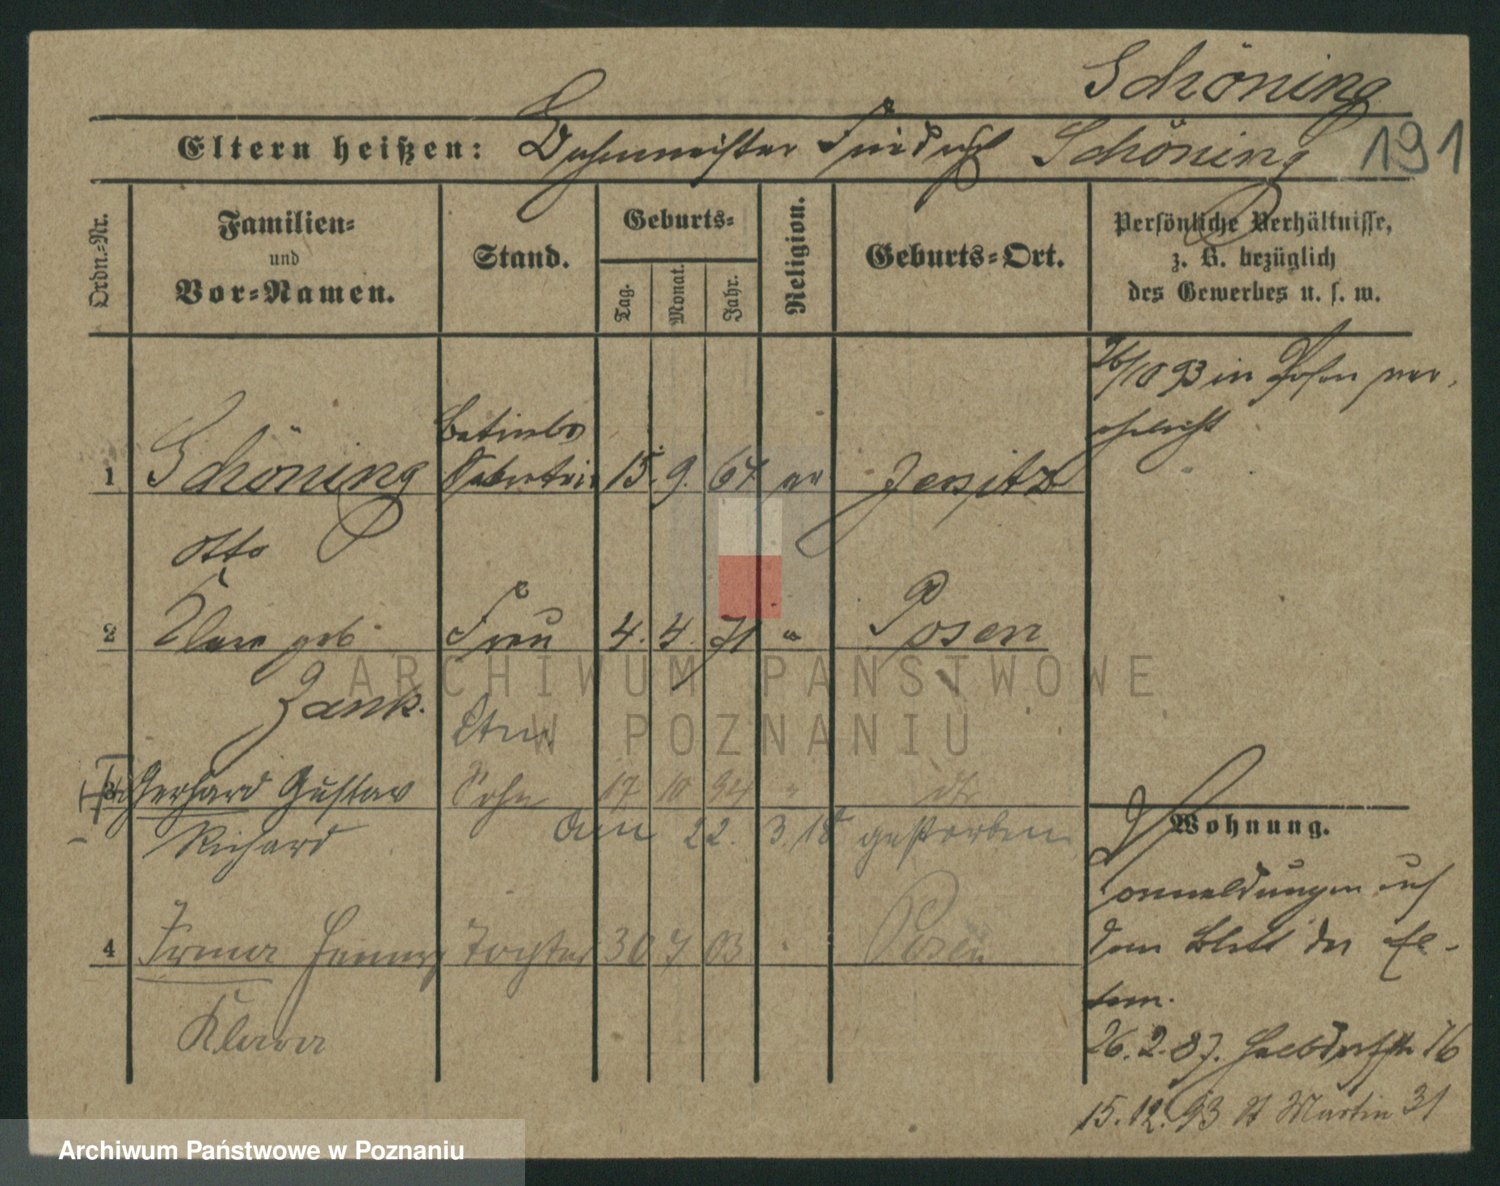 Schöning
Eltern heißen: Bahnmeister Friedrich Schöning 191
Ordn.=Nr.
Familien=
und
Vor=Namen.
Stand.
Geburts=
Tag.
Monat.
Jahr.
Religion.
Geburts=Ort.
Persönliche Verhältnisse,
z. B. bezüglich
des Gewerbes u. s. w.
26/10 93 in Posen ver=
ehelicht
Betriebs
1 Schöning 15. 9. 67 ev Jersitz
Otto
2 Clara geb Frau 4. 4. 71 " Posen
Zank.
3 Gerhard Gustav Sohn 17 10 94 "
Richard
am 22. 3. 18 gestorben
4 Irma Tochter 30 7 03 Posen
Klara
Wohnung.
Vormeldungen auf
dem Blatt der El-
tern.
26. 2. 87. Halbdorfstr 16
15. 12. 93 St Martin 31
ARCHIWUM PAŃSTWOWE
W POZNANIU
Archiwum Państwowe w Poznaniu